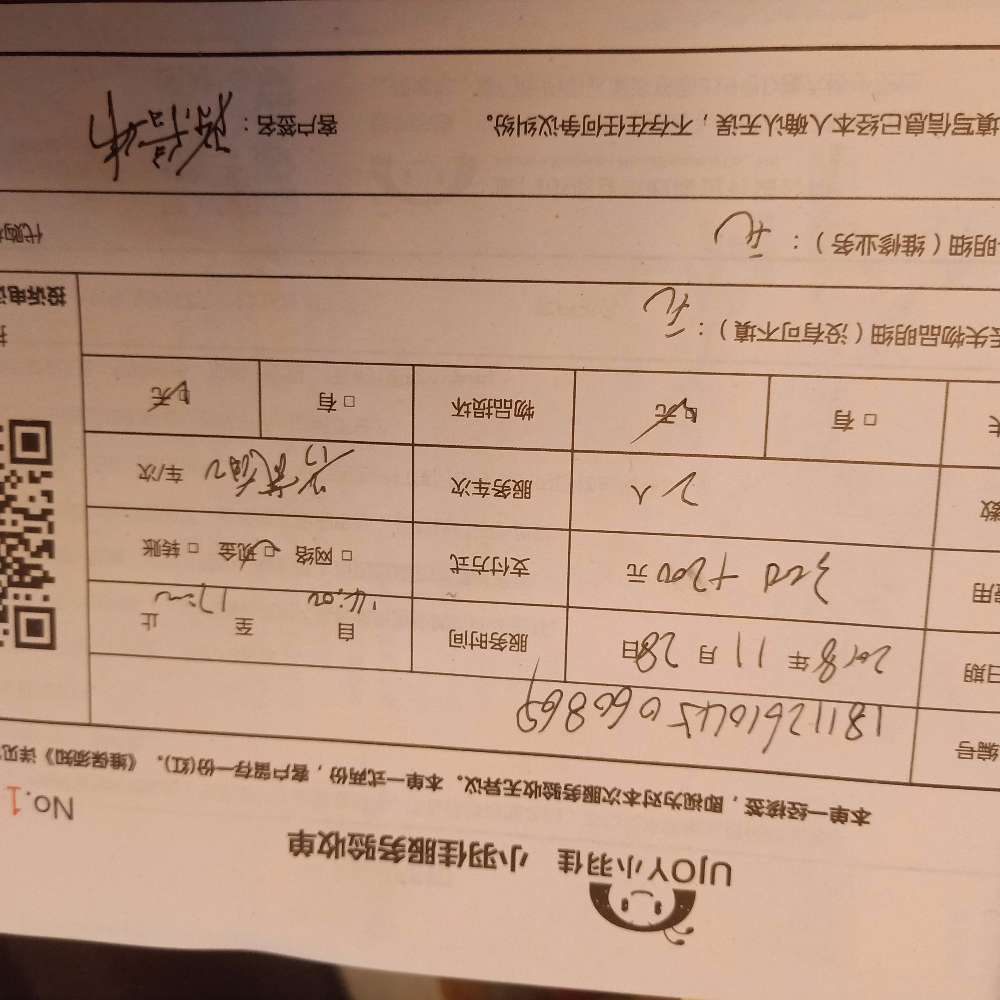 UJOY小羽佳 小羽佳服务验收单
No.1
本单一经接签，即视为对本次服务验收无异议。本单一式两份，客户留存一份(红)。《维保须知》详见
编号 181126104506086
日期 2018年 11月 28日 服务时间 自 14:00 至 17:00 止
费用 300+200元 支付方式 □ 网络 □ 现金 □ 转账
数 2人 服务车次 车/次
□ 有 □ 无 物品损坏 □ 有 □ 无
失物品明细（没有可不填）：无
投诉电话
明细（维修业务）：无
代购
填写信息已经本人确认无误，不存在任何争议纠纷。 客户签名：